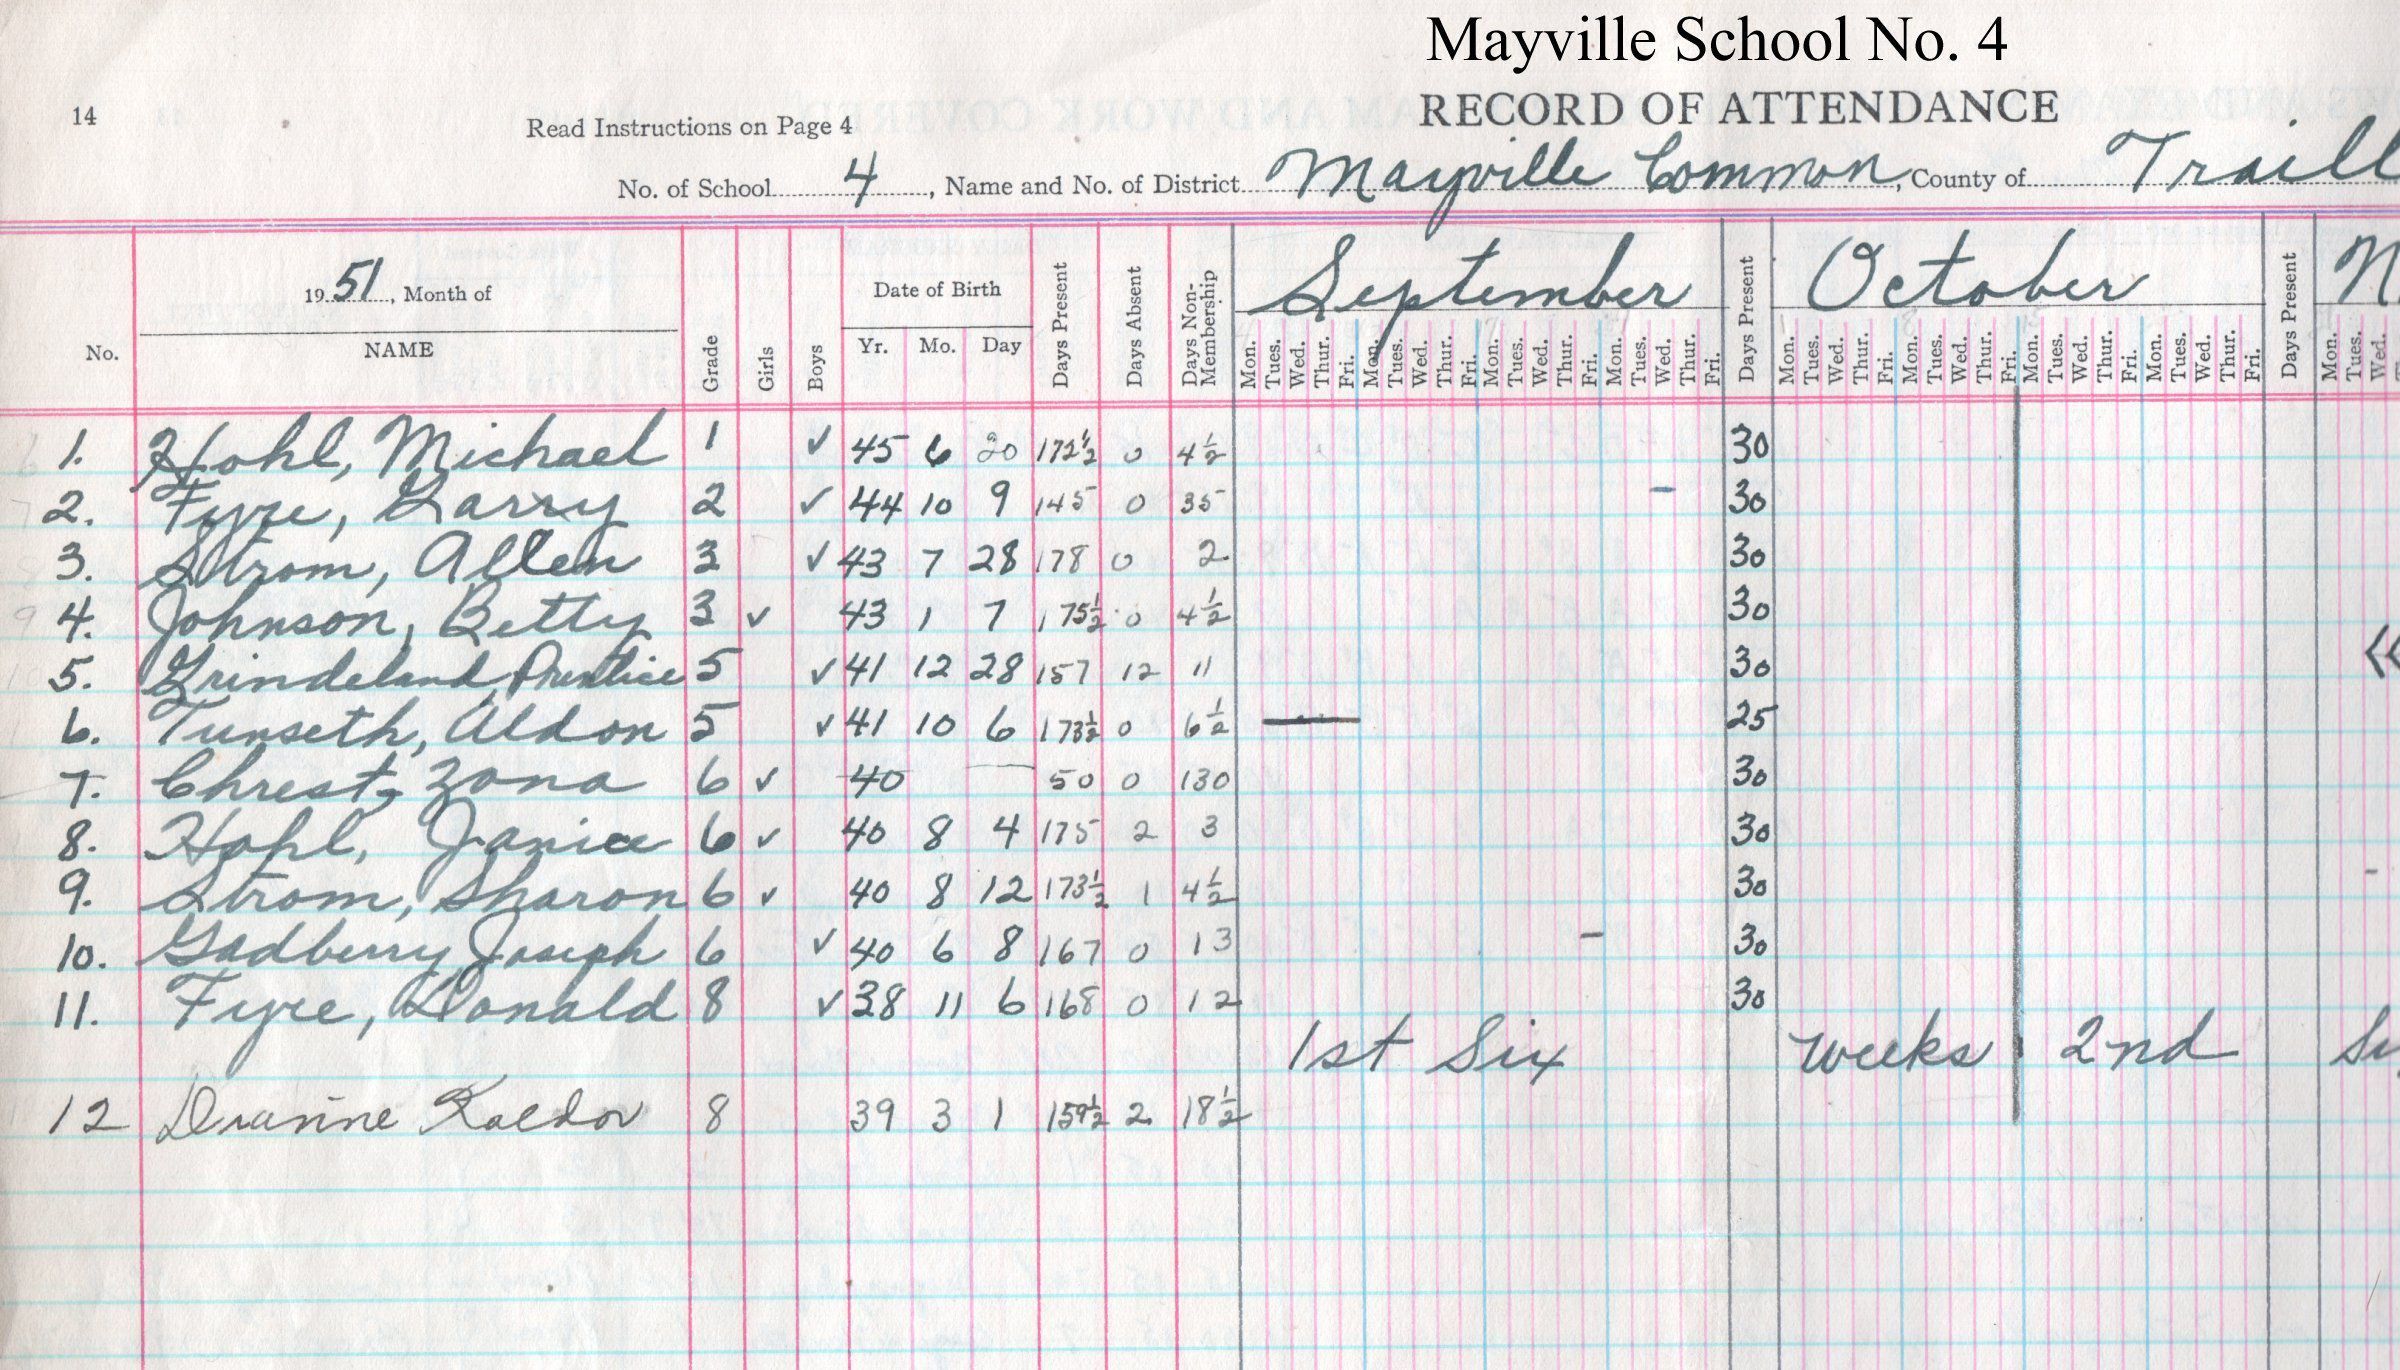 Mayville School No. 4
14 Read Instructions on Page 4 RECORD OF ATTENDANCE
No. of School 4, Name and No. of District Mayville Common, County of Traill
No. 1951, Month of NAME Grade Girls Boys Date of Birth Yr. Mo. Day Days Present Days Absent Days Non-Membership September Days Present October Days Present N
Mon. Tues. Wed. Thur. Fri. Mon. Tues. Wed. Thur. Fri. Mon. Tues. Wed. Thur. Fri. Mon. Tues. Wed. Thur. Fri. Mon. Tues. Wed. Thur. Fri. Mon. Tues. Wed. Thur. Fri. Mon. Tues. Wed. Thur. Fri. Mon. Tues. Wed. Thur. Fri. Mon. Tues. Wed.
1. Hohl, Michael 1 ✓ 45 6 20 172½ 0 4½ 30
2. Fyre, Larry 2 ✓ 44 10 9 145 0 35 - 30
3. Strom, Allen 3 ✓ 43 7 28 178 0 2 30
4. Johnson, Betty 3 ✓ 43 1 7 175½ 0 4½ 30
5. Grindeland, Prentice 5 ✓ 41 12 28 157 12 11 30
6. Tunseth, Aldon 5 ✓ 41 10 6 173½ 0 6½ — 25
7. Chrest, Zona 6 ✓ 40 — 50 0 130 30
8. Hohl, Janice 6 ✓ 40 8 4 175 2 3 30
9. Strom, Sharon 6 ✓ 40 8 12 173½ 1 4½ 30
10. Gadberry, Joseph 6 ✓ 40 6 8 167 0 13 - 30
11. Fyre, Donald 8 ✓ 38 11 6 168 0 12 30
1st Six weeks 2nd
12 Deanne Kaldor 8 39 3 1 159½ 2 18½